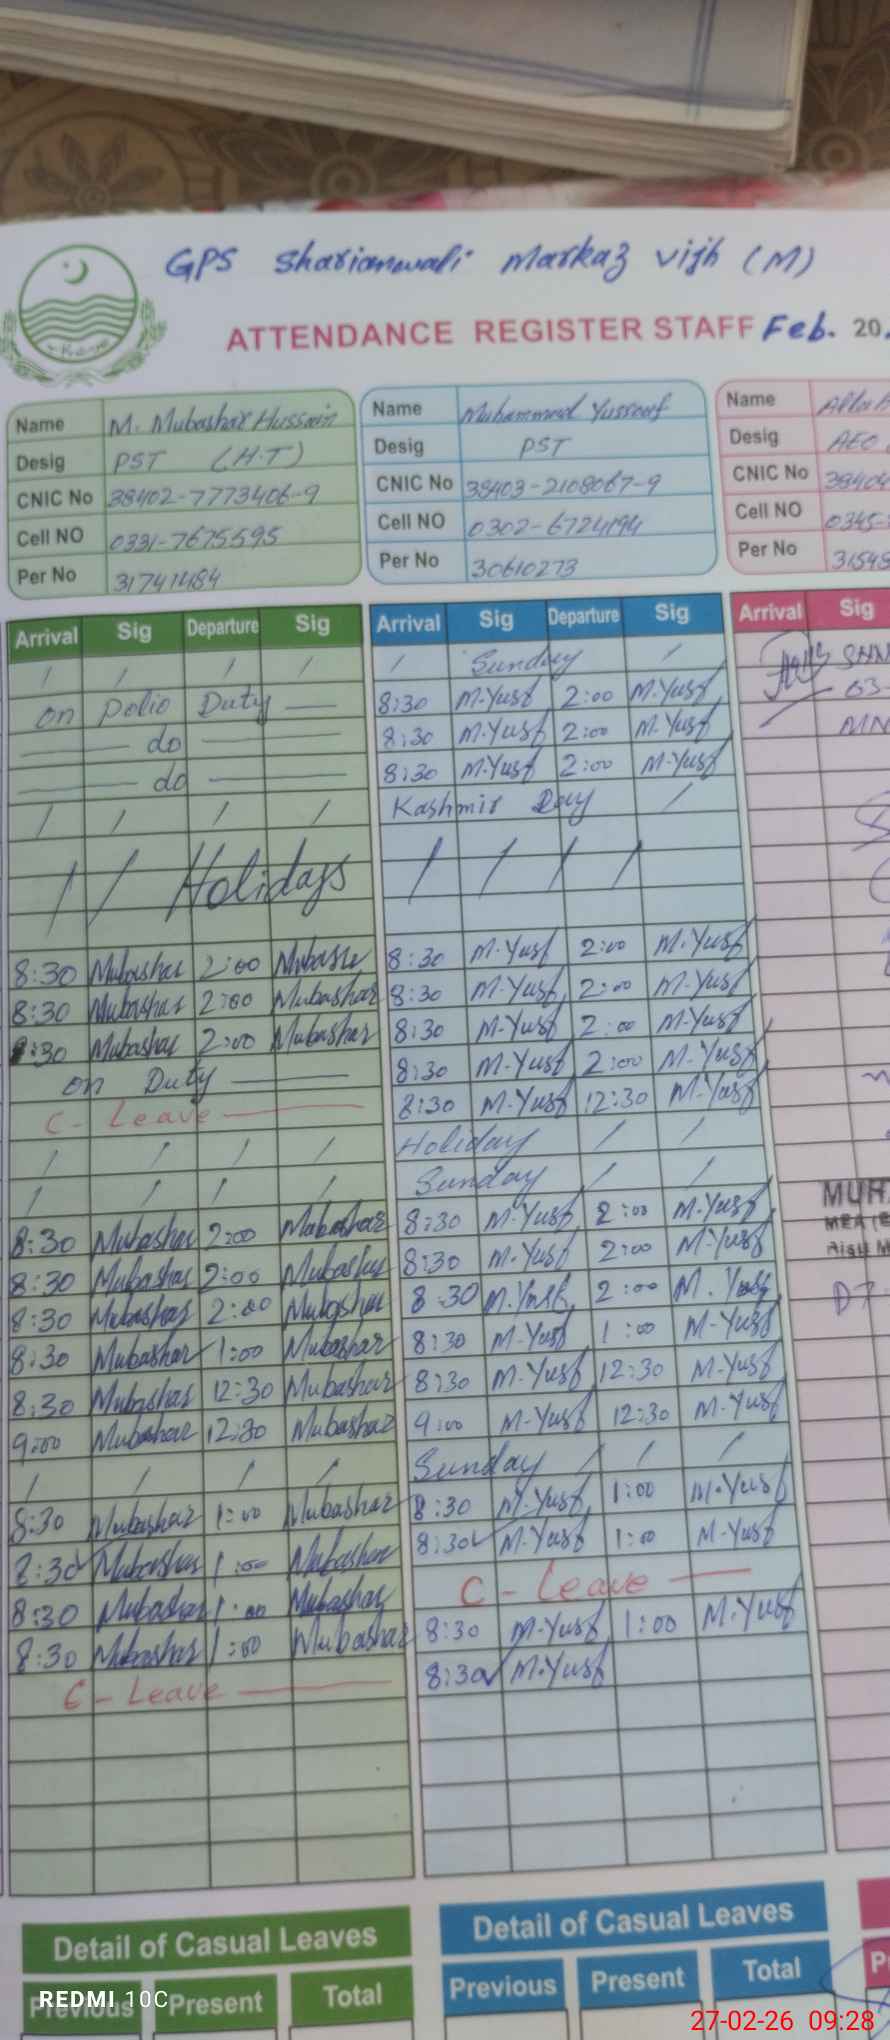 GPS Sharianwali Markaz Vijh (M)
ATTENDANCE REGISTER STAFF Feb. 20
Name M. Mubashar Hussain
Desig PST (H.T)
CNIC No 38402-7773406-9
Cell NO 0331-7675595
Per No 31741484
Name Muhammad Yussouf
Desig PST
CNIC No 38403-2108067-9
Cell NO 0302-6724194
Per No 30610273
Name
Desig AEO
CNIC No 38404
Cell NO 0345-
Per No 31548
Arrival Sig Departure Sig
/ / / /
on Polio Duty —
— do —
— do —
/ / / /
/ / Holidays
8:30 Mubashar 2:00 Mubashar
8:30 Mubashar 2:00 Mubashar
8:30 Mubashar 2:00 Mubashar
on Duty —
C- Leave —
/ / / /
/ / / /
8:30 Mubashar 2:00 Mubashar
8:30 Mubashar 2:00 Mubashar
8:30 Mubashar 2:00 Mubashar
8:30 Mubashar 1:00 Mubashar
8:30 Mubashar 12:30 Mubashar
9:00 Mubashar 12:30 Mubashar
/ / / /
8:30 Mubashar 1:00 Mubashar
8:30 Mubashar 1:00 Mubashar
8:30 Mubashar 1:00 Mubashar
8:30 Mubashar 1:00 Mubashar
C - Leave —
Arrival Sig Departure Sig
/ Sunday /
8:30 M.Yusf 2:00 M.Yusf
8:30 M.Yusf 2:00 M.Yusf
8:30 M.Yusf 2:00 M.Yusf
Kashmir Day /
/ / / /
8:30 M.Yusf 2:00 M.Yusf
8:30 M.Yusf 2:00 M.Yusf
8:30 M.Yusf 2:00 M.Yusf
8:30 M.Yusf 2:00 M.Yusf
8:30 M.Yusf 12:30 M.Yusf
Holiday / /
Sunday / /
8:30 M.Yusf 2:00 M.Yusf
8:30 M.Yusf 2:00 M.Yusf
8:30 M.Yusf 2:00 M.Yusf
8:30 M.Yusf 1:00 M.Yusf
8:30 M.Yusf 12:30 M.Yusf
9:00 M.Yusf 12:30 M.Yusf
Sunday / / /
8:30 M.Yusf 1:00 M.Yusf
8:30 M.Yusf 1:00 M.Yusf
C - Leave —
8:30 M.Yusf 1:00 M.Yusf
8:30 M.Yusf
Arrival Sig
03-
MUH
MEA
Detail of Casual Leaves
Previous Present Total
Detail of Casual Leaves
Previous Present Total
REDMI 10C
27-02-26 09:28